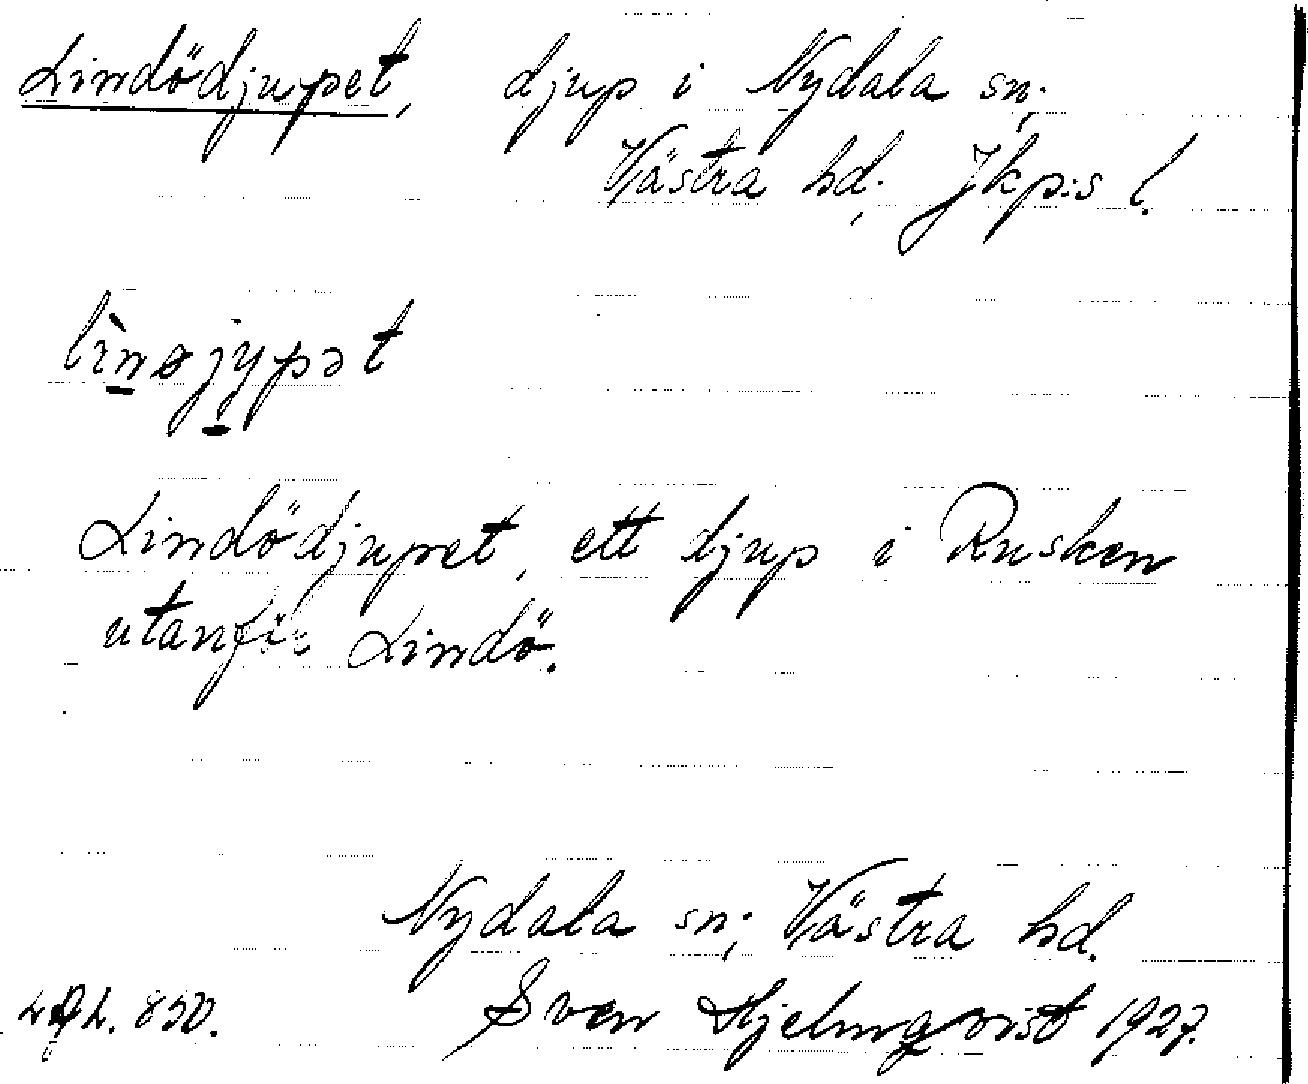 Lindödjupet, djup i Nydala sn.,
Västra hd., Jkp:s l.
lìnøjypət
Lindödjupet, ett djup i Rusken
utanför Lindö.
Nydala sn., Västra hd.
850. Sven Hjelmqvist 1927.